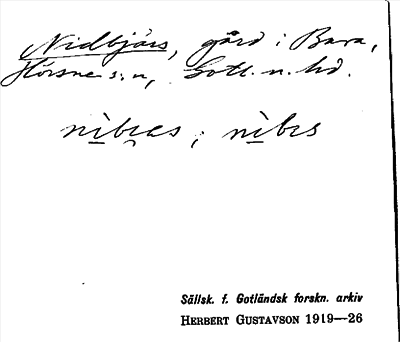 Nidbjärs, gård i Bara,
Hörsne s:n, Gotl. n. hd.
nìbɪas ; nìbɪs
Sällsk. f. Gotländsk forskn. arkiv
HERBERT GUSTAVSON 1919—26